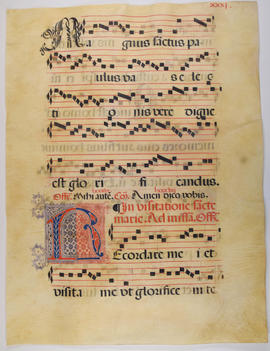 xxxj.
Magnus sactus pa
ulus va se le c
ti o nis vere digne
est glo ri fi candus.
Offe. Mihi aute. Co. Amen dico vobis.
In visitatione sacte
marie. Ad missa. Offe.
Recordare me i et
visita me vt glorifice m te